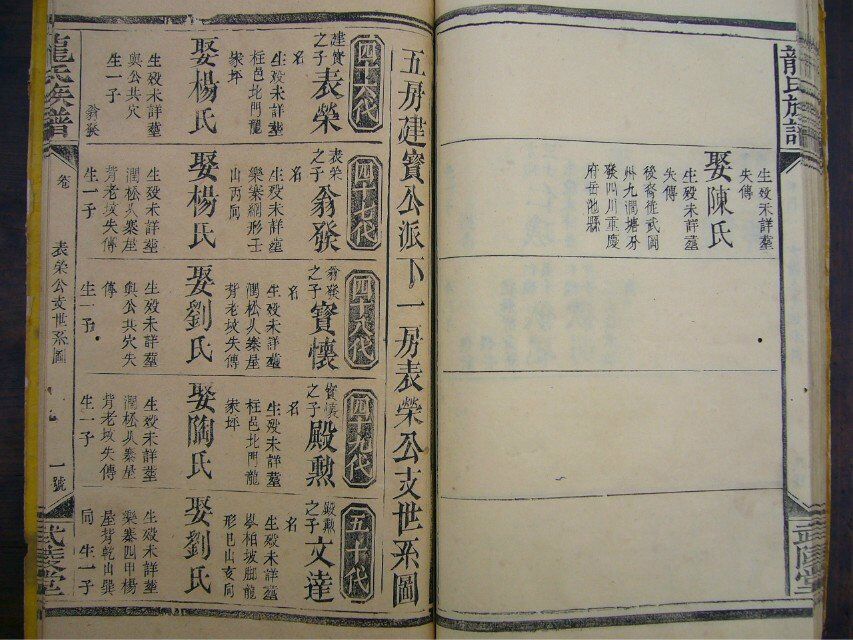 龍氏族譜
武陵堂
生歿未詳塟
失傳
娶陳氏
生歿未詳塟
失傳
後裔徙武岡
州九澗塘另
發四川重慶
府岳池縣
五房建寶公派下一房表榮公支世系圖
四十六代
建寶之子表榮
名
生歿未詳塟
柱邑北門龍
家坪
娶楊氏
生歿未詳塟
與公共穴
生一子
翁發
四十七代
表榮之子翁發
名
生歿未詳塟
樂寨綱形壬
山丙向
娶楊氏
生歿未詳塟
澗松人寨屋
背老坟失傳
生一子
四十八代
翁發之子寶懷
名
生歿未詳塟
澗松人寨屋
背老坟失傳
娶劉氏
生歿未詳塟
與公共穴失
傳
生一子
四十九代
寶懷之子殿勲
名
生歿未詳塟
柱邑北門龍
家坪
娶陶氏
生歿未詳塟
澗松人寨屋
背老坟失傳
生一子
五十代
殿勲之子文達
名
生歿未詳塟
岑柏坡脚龍
形巳山亥向
娶劉氏
生歿未詳塟
樂寨四甲楊
屋背乾山巽
向 生一子
龍氏族譜
卷
表榮公支世系圖
一號
武陵堂